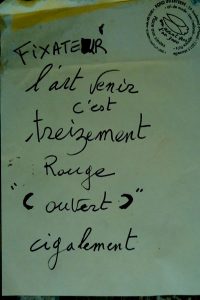 FIXATEUR
l'art venir
c'est
treizement
Rouge
"( ouvert )"
cigalement